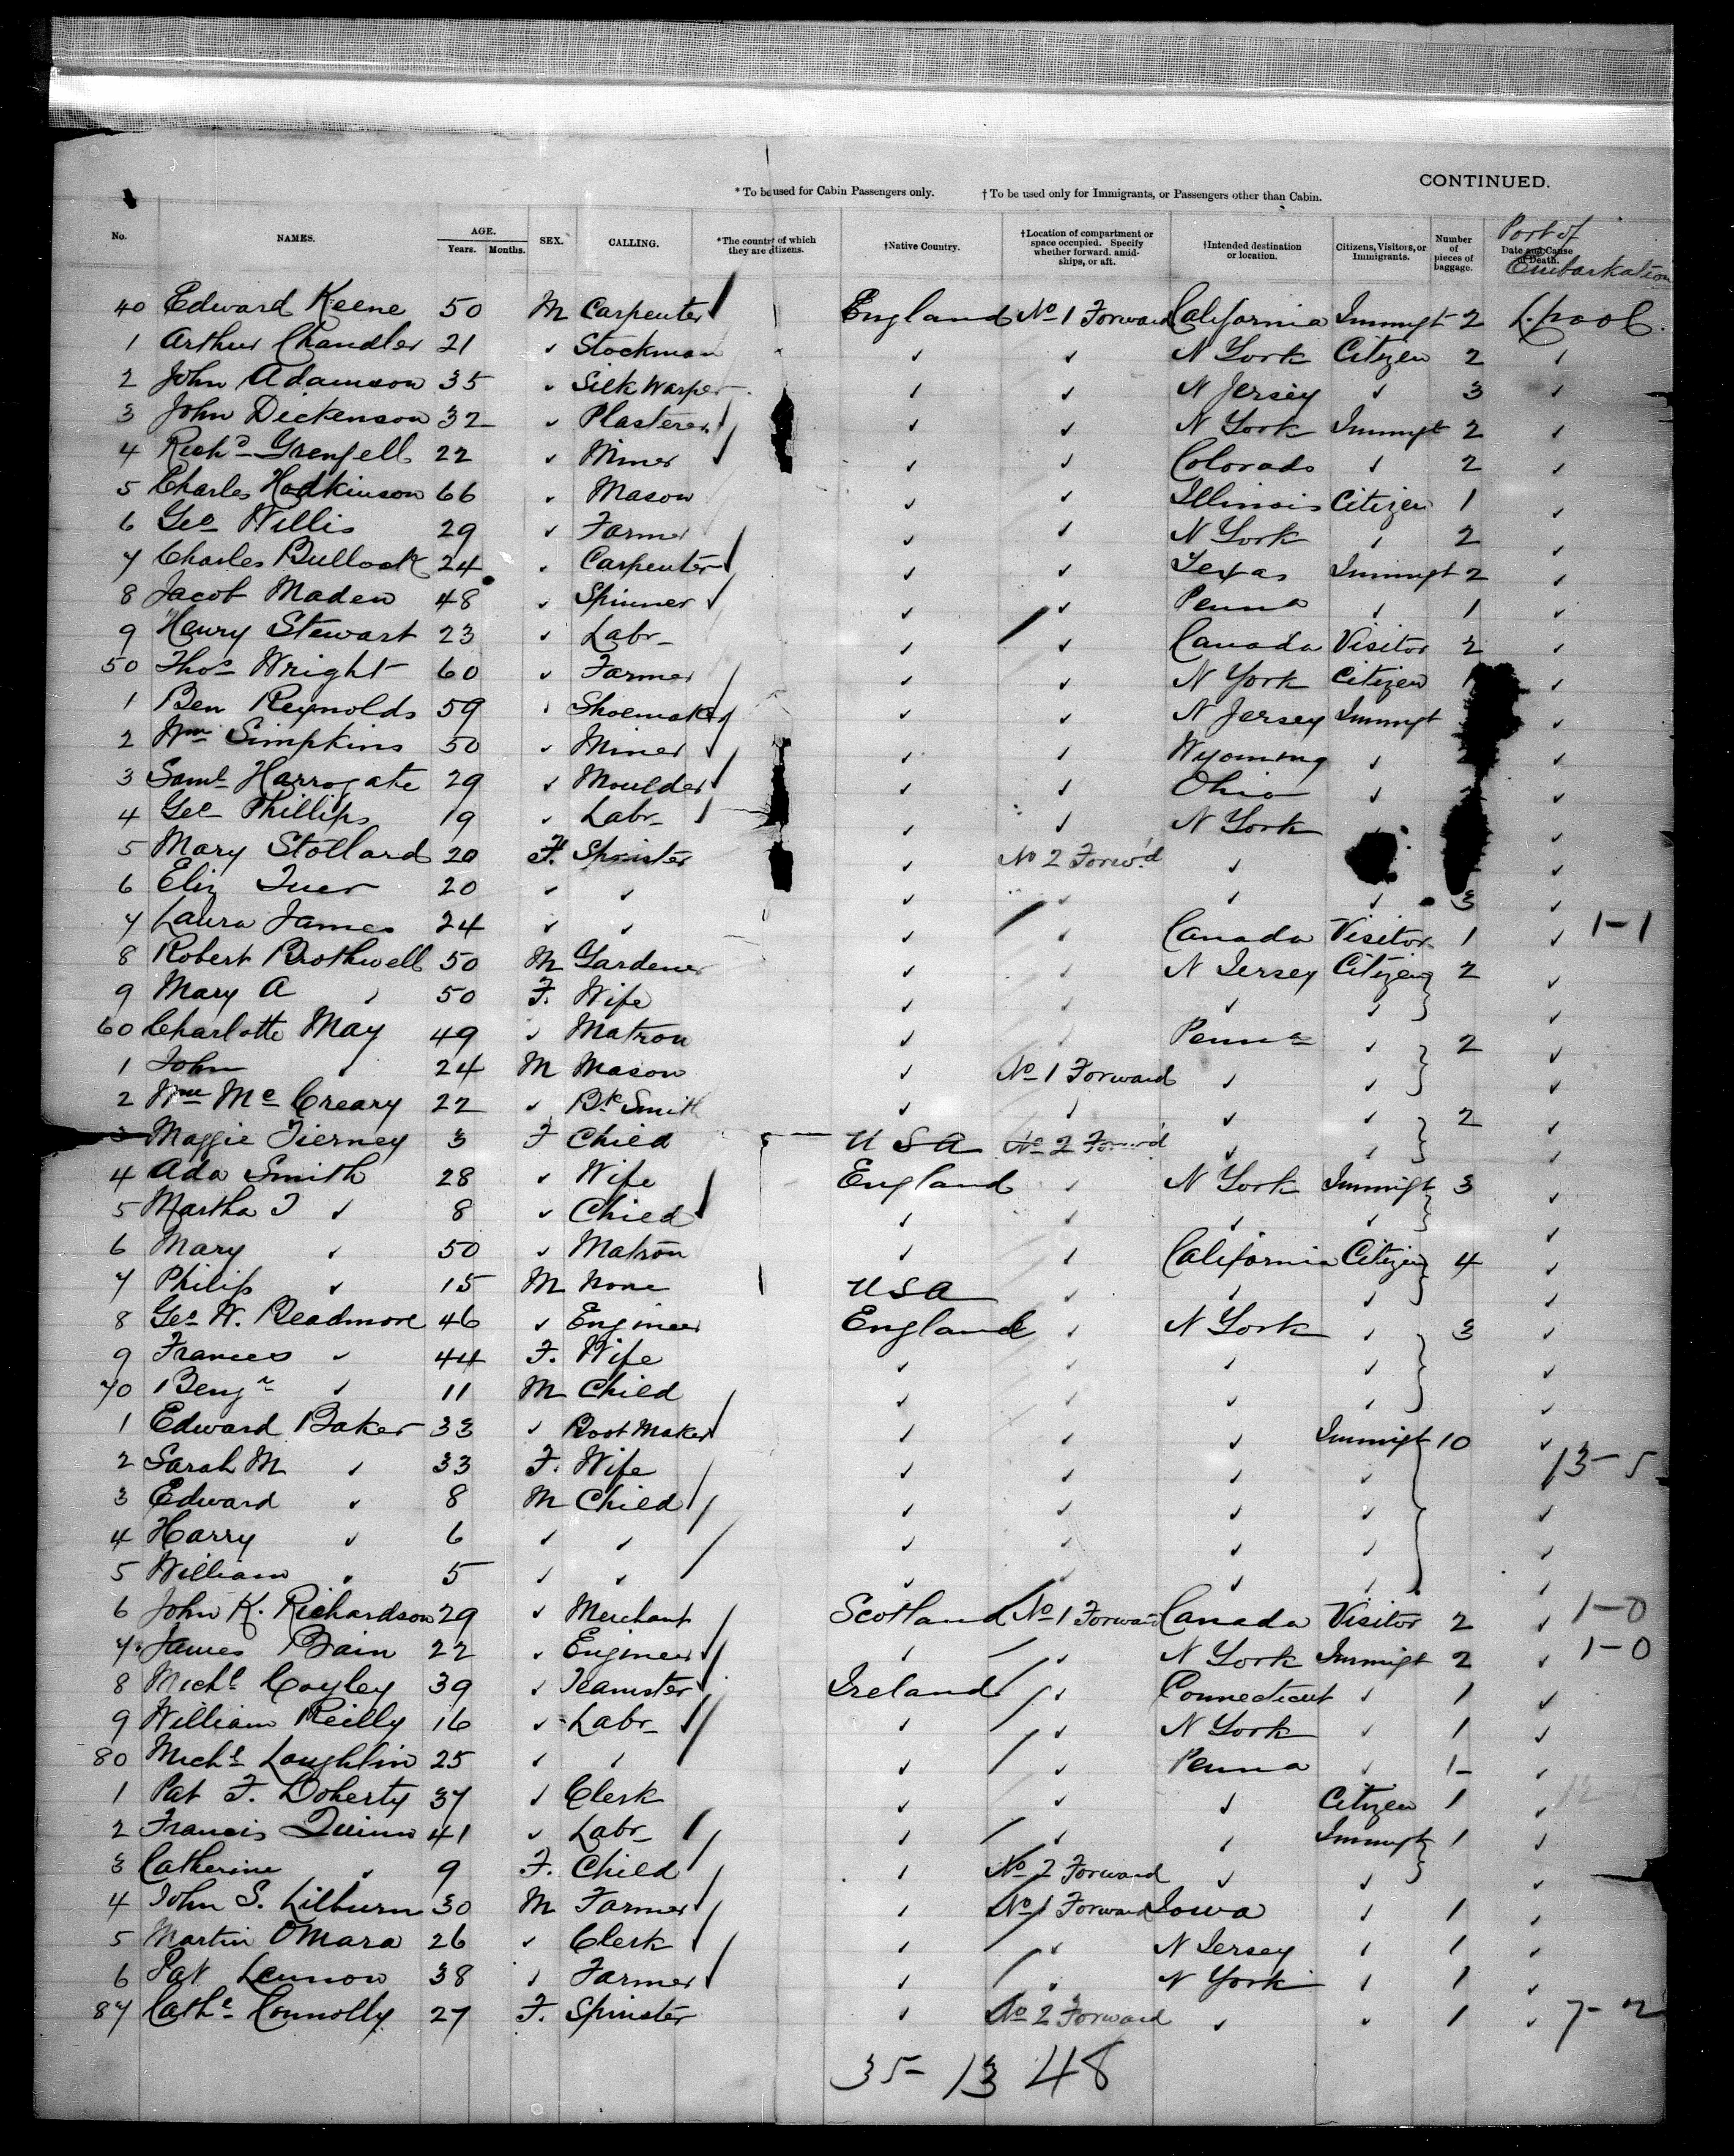 CONTINUED.
* To be used for Cabin Passengers only. † To be used only for Immigrants, or Passengers other than Cabin.
Port of Embarkation
No. NAMES. AGE. Years. Months. SEX. CALLING. *The country of which they are citizens. †Native Country. †Location of compartment or space occupied. Specify whether forward, amidships, or aft. †Intended destination or location. Citizens, Visitors, or Immigrants. Number of pieces of baggage. Date and Cause of Death.
40 Edward Keene 50 M Carpenter England No 1 Forward California Immigt 2 L.pool.
1 Arthur Chandler 21 ✓ Stockman ✓ ✓ N York Citizen 2 ✓
2 John Adamson 35 ✓ Silk Warper ✓ ✓ N Jersey ✓ 3 ✓
3 John Dickenson 32 ✓ Plasterer ✓ ✓ N York Immigt 2 ✓
4 Richd Grenfell 22 ✓ Miner ✓ ✓ Colorado ✓ 2 ✓
5 Charles Hodkinson 66 ✓ Mason ✓ ✓ Illinois Citizen 1 ✓
6 Geo Willis 29 ✓ Farmer ✓ ✓ N York ✓ 2 ✓
7 Charles Bullock 24 ✓ Carpenter ✓ ✓ Texas Immigt 2 ✓
8 Jacob Maden 48 ✓ Spinner ✓ ✓ Penna ✓ 1 ✓
9 Henry Stewart 23 ✓ Labr ✓ ✓ Canada Visitor 2 ✓
50 Thos Wright 60 ✓ Farmer ✓ ✓ N York Citizen 1 ✓
1 Ben Reynolds 59 ✓ Shoemaker ✓ ✓ N Jersey Immigt ✓
2 Wm Simpkins 50 ✓ Miner ✓ ✓ Wyoming ✓ ✓
3 Saml Harrogate 29 ✓ Moulder ✓ ✓ Ohio ✓ ✓
4 Geo Phillips 19 ✓ Labr ✓ ✓ N York ✓
5 Mary Stollard 20 F. Spinster ✓ No 2 Forwd ✓ ✓
6 Eliz 20 ✓ ✓ ✓ ✓ ✓ ✓ 3 ✓
7 Laura James 24 ✓ ✓ ✓ ✓ Canada Visitor 1 ✓ 1-1
8 Robert Brothwell 50 M Gardener ✓ ✓ N Jersey Citizen 2 ✓
9 Mary A ✓ 50 F. Wife ✓ ✓ ✓ ✓ ✓
60 Charlotte May 49 ✓ Matron ✓ ✓ Penna ✓ 2 ✓
1 John ✓ 24 M Mason ✓ No 1 Forward ✓ ✓ ✓
2 Wm McCreary 22 ✓ Bk Smith ✓ ✓ ✓ ✓ 2 ✓
3 Maggie Tierney 3 F Child USA No 2 Forwd ✓ ✓ ✓
4 Ada Smith 28 ✓ Wife England ✓ N York Immigt 3 ✓
5 Martha J ✓ 8 ✓ Child ✓ ✓ ✓ ✓ ✓
6 Mary ✓ 50 ✓ Matron ✓ ✓ California Citizen 4 ✓
7 Philip ✓ 15 M None USA ✓ ✓ ✓ ✓
8 Geo W. Beadmore 46 ✓ Engineer England ✓ N York ✓ 3 ✓
9 Frances ✓ 44 F. Wife ✓ ✓ ✓ ✓ ✓
70 Benjn ✓ 11 M Child ✓ ✓ ✓ ✓ ✓
1 Edward Baker 33 ✓ Boot Maker ✓ ✓ ✓ Immigt 10 ✓
2 Sarah M ✓ 33 F. Wife ✓ ✓ ✓ ✓ 13-5
3 Edward ✓ 8 M Child ✓ ✓ ✓ ✓ ✓
4 Harry ✓ 6 ✓ ✓ ✓ ✓ ✓ ✓ ✓
5 William ✓ 5 ✓ ✓ ✓ ✓ ✓ ✓ ✓
6 John K. Richardson 29 ✓ Merchant Scotland No 1 Forward Canada Visitor 2 ✓ 1-0
7 James Bain 22 ✓ Engineer ✓ ✓ N York Immigt 2 ✓ 1-0
8 Michl Coyley 39 ✓ Teamster Ireland ✓ Connecticut ✓ 1 ✓
9 William Reilly 16 ✓ Labr ✓ ✓ N York ✓ 1 ✓
80 Michl Loughlin 25 ✓ ✓ ✓ ✓ Penna ✓ 1 ✓
1 Pat F. Doherty 37 ✓ Clerk ✓ ✓ ✓ Citizen 1 ✓ 12
2 Francis Quinn 41 ✓ Labr ✓ ✓ ✓ Immigt 1 ✓
3 Catherine ✓ 9 F. Child ✓ No 2 Forward ✓ ✓ ✓
4 John S. Lilburn 30 M Farmer ✓ No 1 Forward Iowa ✓ 1 ✓
5 Martin OMara 26 ✓ Clerk ✓ ✓ N Jersey ✓ 1 ✓
6 Pat Lennon 38 ✓ Farmer ✓ ✓ N York ✓ 1 ✓
87 Cathe Connolly 27 F. Spinster ✓ No 2 Forward ✓ ✓ 1 ✓ 7-2
35-13 48